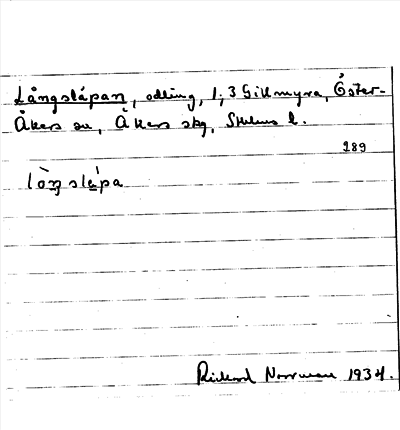 Långslápan, odling, 1; 3 Gillmyra, Öster-
Åkers sn, Åkers skg, Sthlms l.
289
lòŋslápa
Rickard Norrman 1934.